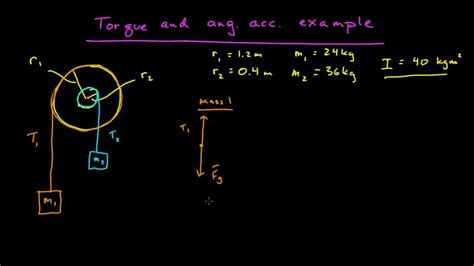 Torque and ang. acc. example
r₁ = 1.2 m m₁ = 24 kg
r₂ = 0.4 m m₂ = 36 kg
I = 40 kgm²
r₁
r₂
Mass 1
T₁
T₂
T₁
m₂
F̄g
m₁